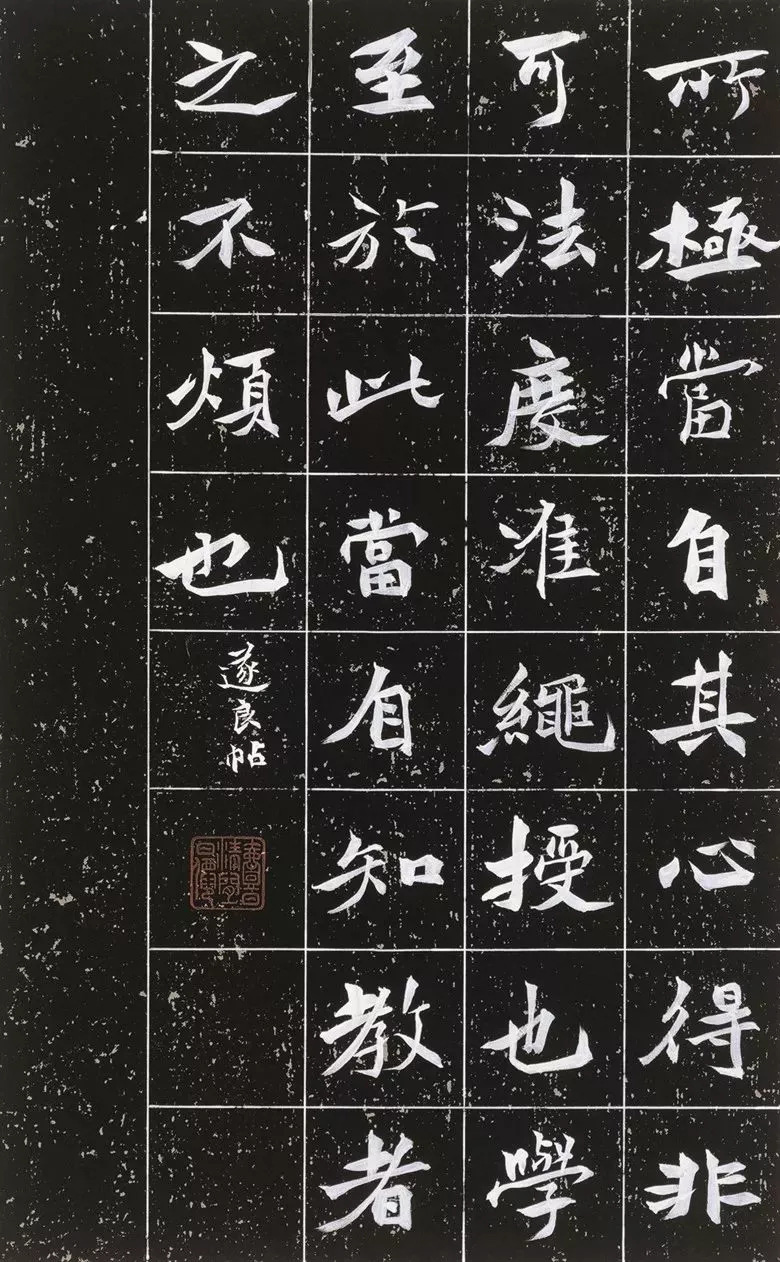 所極當自其心得非
可法度准繩授也學
至於此當自知教者
之不煩也
遂良帖